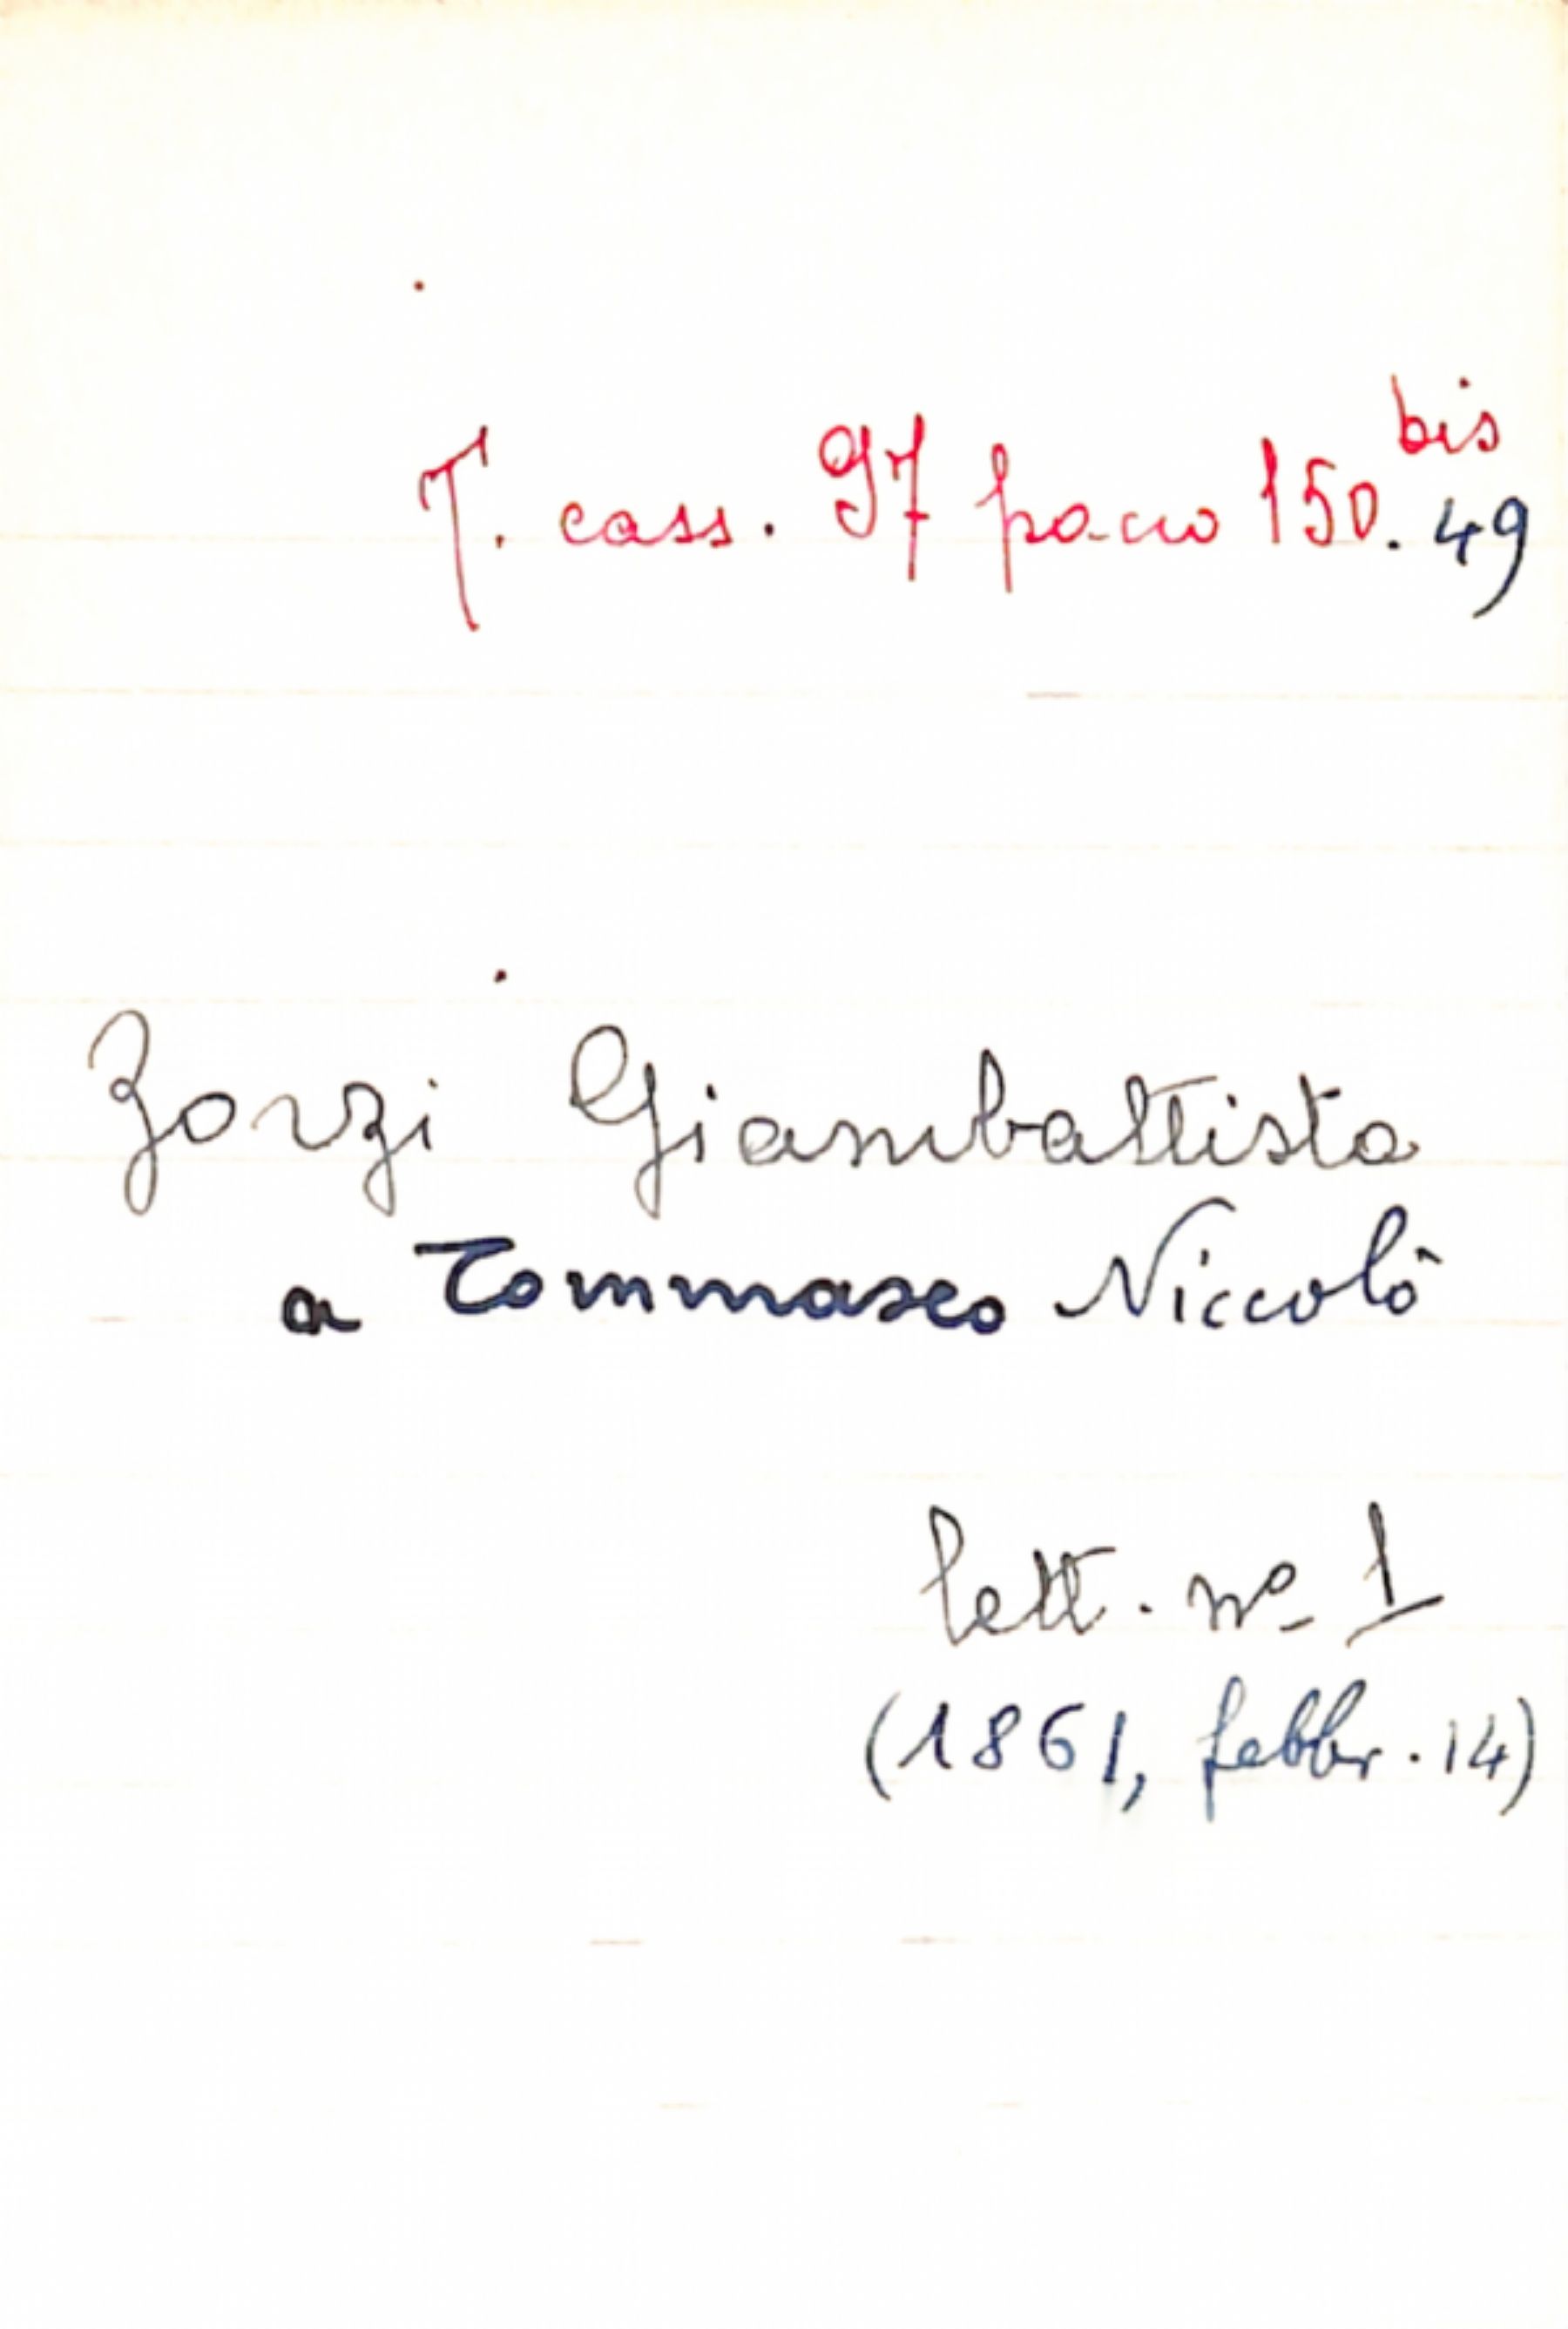 T. cass. 97 pacco 150. bis 49
Zorzi Giambattista
a Tommaseo Niccolò
lett. nº 1
(1861, febbr. 14)